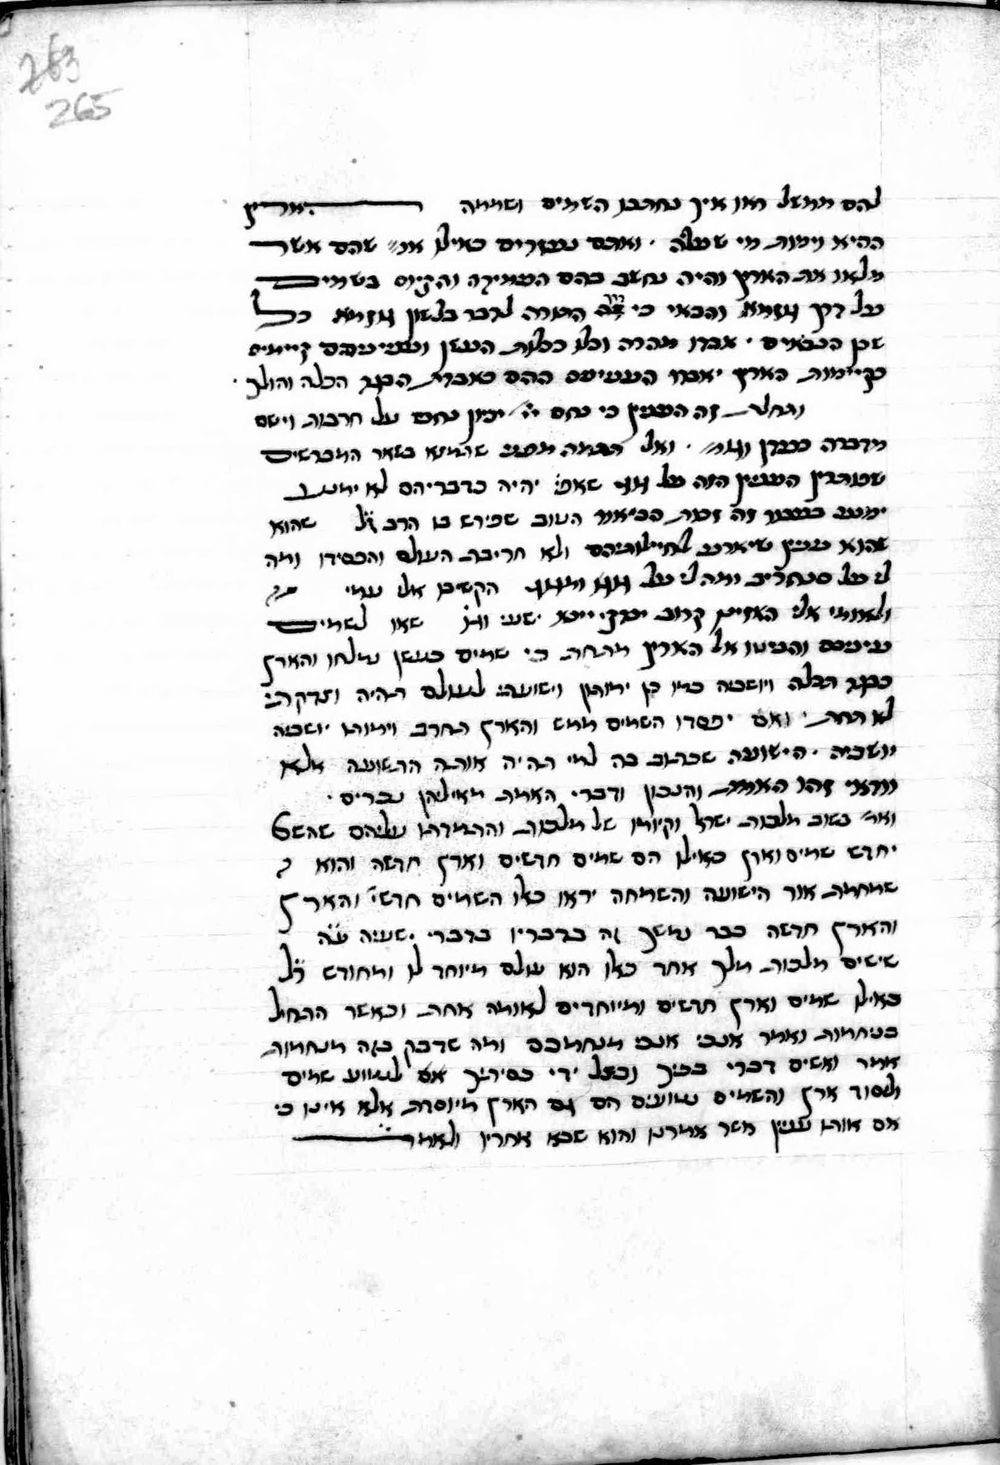 263
265
להם ממשל ראו איך נחרבו השמים ושממה הארץ
ההיא וימות מי שעליה . ואתם נשארים כאילו אתם שהם אשר
מלאו את הארץ והיה נחשב בהם העמידה והקיום בשמים
על דרך גוזמא והבאי כי דרך התורה לדבר בלשון גוזמא כל
שכן הנביאים . אבדו מהרה וכלו ככלות העשן ומעשיהם קיימים
כקיימות הארץ יאבדו המעשים ההם כאבדת הבגד הבלה והולך .
ותחלת זה הענין כי נחם יי' ציון נחם כל חרבותיה וישם
מדברה כעדן וגו' . ואל תתמה ממני שתמצא בשאר המפרשים
שפותרין הענין הזה על גוג שאפי' יהיה כדבריהם לא ימנע
ימנע בעבור זה זולת הביאור הטוב שפירש בו הרב ז"ל שהוא
שהוא ענין שיארע לחיילותיהם ולא חריבת העולם והפסידו ומה
לי על סנחריב ומה לי על גוג ומגוג הקשיבו אלי עמי
ולאומי אלי האזינו קרוב צדקי יצא ישעי וגו' שאו לשמים
עיניכם והביטו אל הארץ מתחת כי שמים כעשן נמלחו והארץ
כבגד תבלה ויושביה כמו כן ימותון וישועתי לעולם תהיה וצדקתי
לא תחת . ואם יפסדו השמים ממש והארץ תחרב וימותו יושביה
יושביה . הישועה שכתוב בה למי תהיה אותה התשועה אלא
וודאי זהו האמת והנכון ודברי האמת מאילהן נכרים .
ואמ' בשוב מלכות ישראל וקיומו של מלכות והתמדתו עליהם שהשם
יחדש שמים וארץ כאילו הם שמים חדשים וארץ חדשה והוא
שמחמת אור הישועה והשמחה יראו כאלו השמים חדשי' והארץ
והארץ חדשה כבר נמשך זה בדבריו בדברי ישעיה ע"ה
שישים מלכות מלך אחד כאלו הוא עולם מיוחד לו ומחודש ר"ל
כאילו שמים וארץ חדשים ומיוחדים לאומה אחת וכאשר התחיל
בנחמות ואמר אנכי אנכי מנחמכם ומה שדבק בזה מנחמות
אמר ואשים דברי בפיך ובצל ידי כסיתיך אם לנטוע שמים
וליסוד ארץ והשמים נטועים הם גם הארץ מיוסדת אלא אינו כי
אם אותו ענין אשר אמרנו והוא שבא אחריו ולאמר